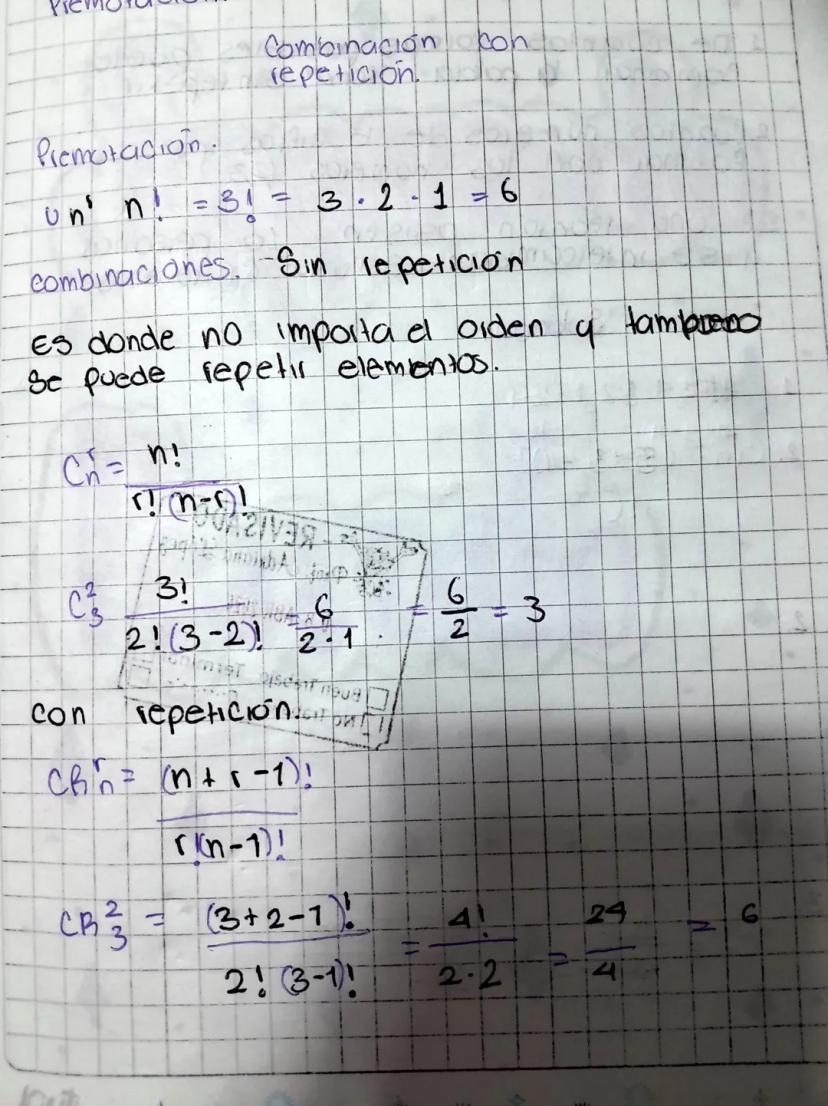 Combinación con
repetición.
Piemutación.
n! = 3! = 3 · 2 · 1 = 6
combinaciones. Sin repetición
Es donde no importa el orden y
se puede repetir elementos.
C_n^r = n! / r!(n-r)!
C_3^2 3! / 2!(3-2)! = 6 / 2·1 = 6/2 = 3
con repetición.
CR_n^r = (n+r-1)! / r!(n-1)!
CR_3^2 = (3+2-1)! / 2!(3-1)! = 4! / 2·2 = 24/4 = 6